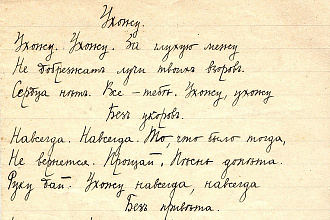 Ухожу.
Ухожу. Ухожу. За глухую межу
Не добрежжатъ лучи твоихъ взоровъ.
Сердца нѣтъ. Все – тебѣ. Ухожу, ухожу
Безъ укоровъ.
Навсегда. Навсегда. То, что было тогда,
Не вернется. Прощай. Пѣснь допѣта.
Руку дай. Ухожу навсегда, навсегда
Безъ привѣта.